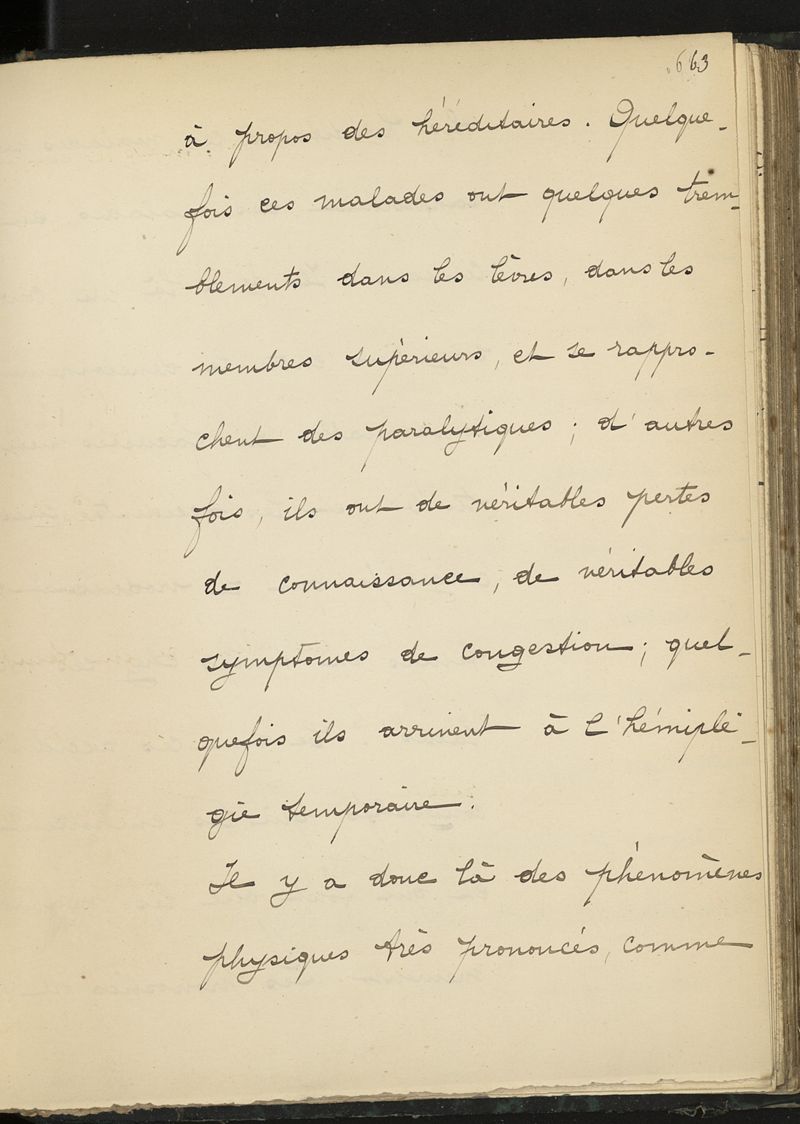 663
à propos des héréditaires. Quelque-
fois ces malades ont quelques trem-
blements dans les lèvres, dans les
membres supérieurs, et se rappro-
chent des paralytiques; d'autres
fois, ils ont de véritables pertes
de connaissance, de véritables
symptomes de congestion; quel-
quefois ils arrivent à l'hémiplé-
gie temporaire.
Il y a donc là des phénomènes
physiques très prononcés, comme